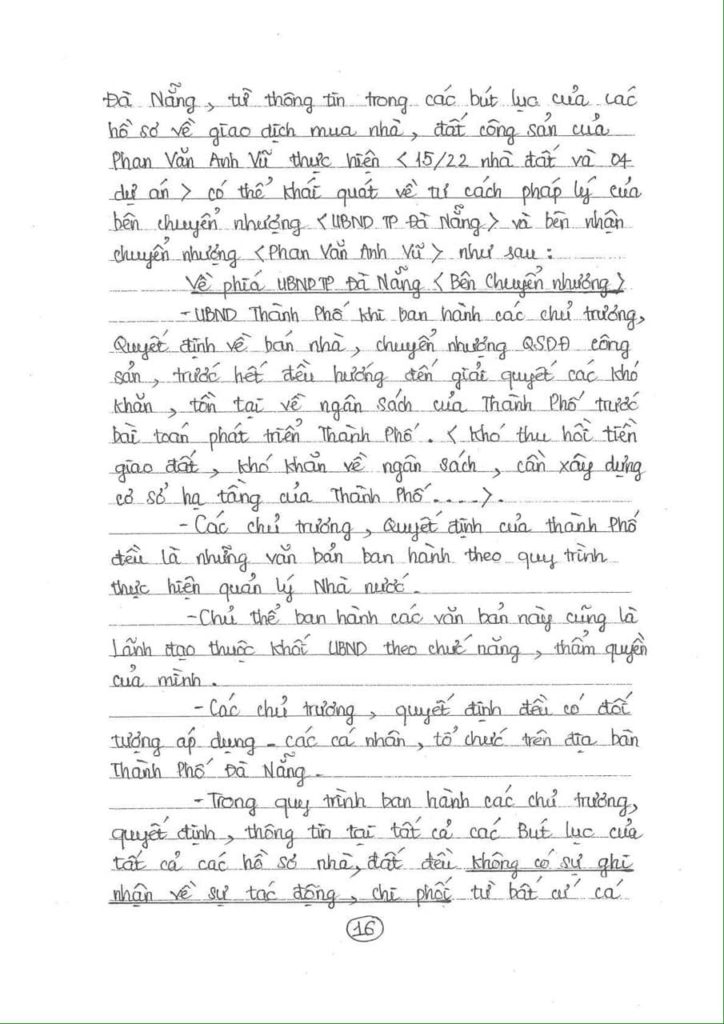 Đà Nẵng, từ thông tin trong các bút lục của các
hồ sơ về giao dịch mua nhà, đất công sản của
Phan Văn Anh Vũ thực hiện < 15/22 nhà đất và 04
dự án > có thể khái quát về tư cách pháp lý của
bên chuyển nhượng < UBND TP Đà Nẵng > và bên nhận
chuyển nhượng < Phan Văn Anh Vũ > như sau :
Về phía UBND TP Đà Nẵng < Bên Chuyển nhượng >
- UBND Thành Phố khi ban hành các chủ trương,
Quyết định về bán nhà, chuyển nhượng QSDĐ công
sản, trước hết đều hướng đến giải quyết các khó
khăn, tồn tại về ngân sách của Thành Phố trước
bài toán phát triển Thành Phố. < Khó thu hồi tiền
giao đất, khó khăn về ngân sách, cần xây dựng
cơ sở hạ tầng của Thành Phố.....>.
- Các chủ trương, Quyết định của thành Phố
đều là những văn bản ban hành theo quy trình
thực hiện quản lý Nhà nước.
- Chủ thể ban hành các văn bản này cũng là
Lãnh đạo thuộc khối UBND theo chức năng, thẩm quyền
của mình.
- Các chủ trương, quyết định đều có đối
tượng áp dụng - các cá nhân, tổ chức trên địa bàn
Thành Phố Đà Nẵng.
- Trong quy trình ban hành các chủ trương,
quyết định, thông tin tại tất cả các Bút lục của
tất cả các hồ sơ nhà, đất đều không có sự ghi
nhận về sự tác động, chi phối từ bất cứ cá
16